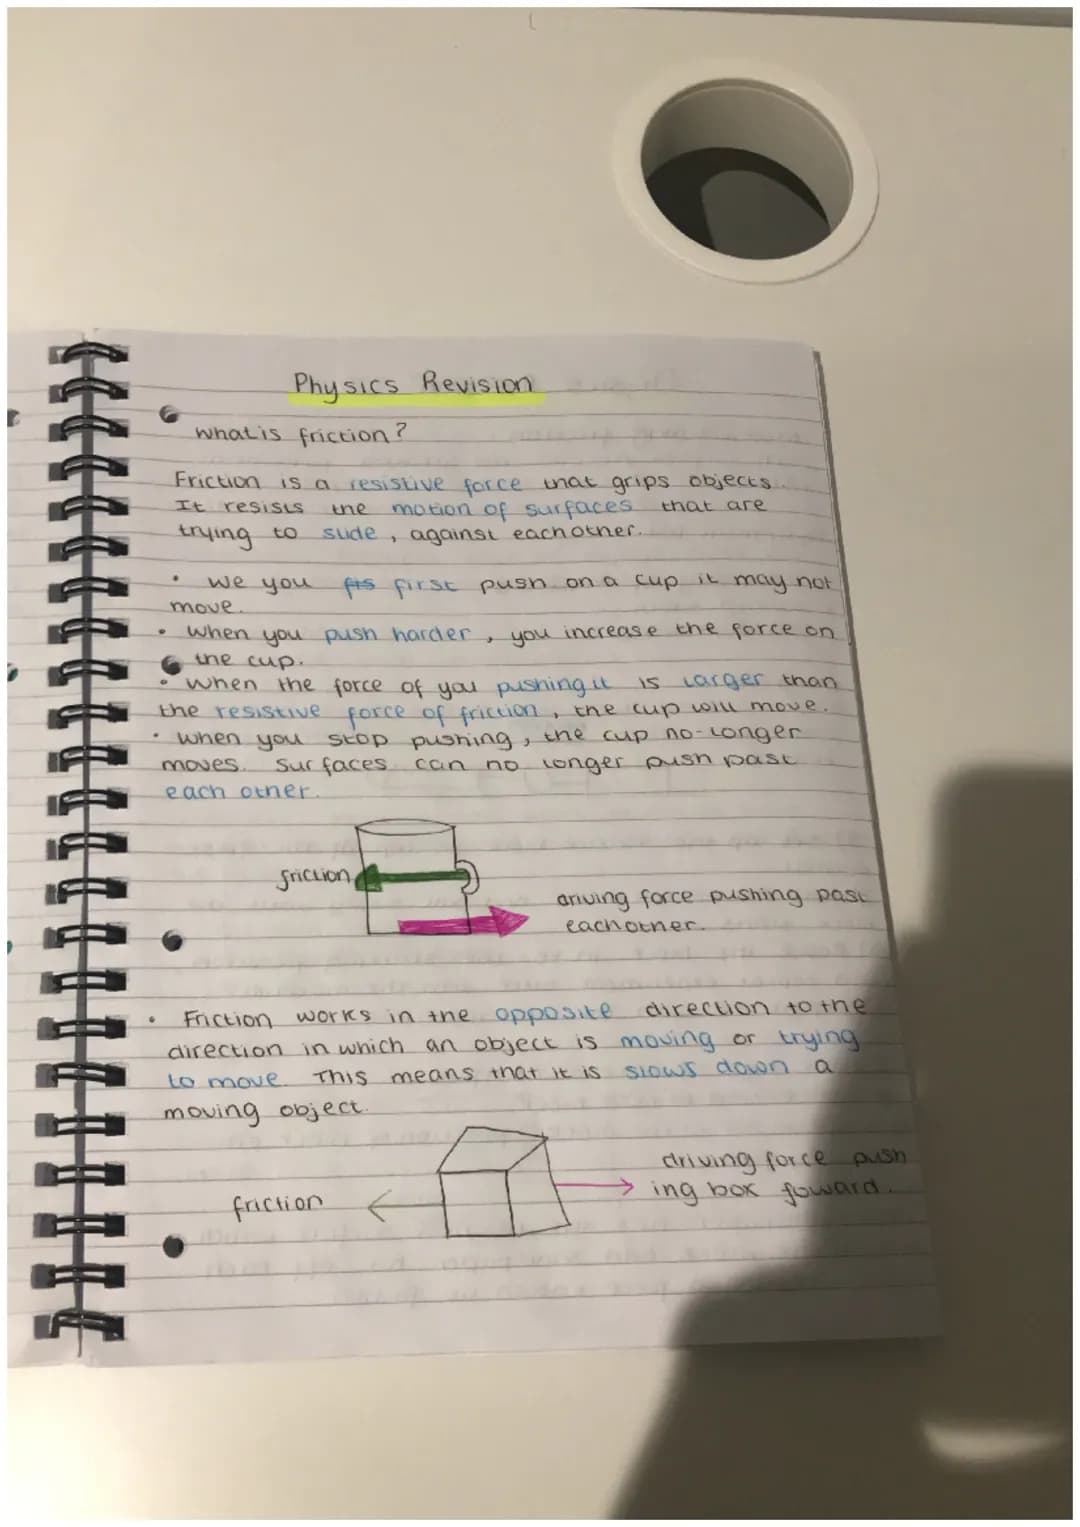 Physics Revision
what is friction?
Friction is a resistive force that grips objects.
It resists the motion of surfaces that are
trying to slide, against eachother.
• We you first push on a cup it may not
move.
• When you push harder, you increase the force on
the cup.
• When the force of you pushing it is larger than
the resistive force of friction, the cup will move.
• When you stop pushing, the cup no-longer
moves. Surfaces can no longer push past
each other.
friction
driving force pushing past
eachother.
• Friction works in the opposite direction to the
direction in which an object is moving or trying
to move. This means that it is slows down a
moving object.
driving force push
ing box foward.
friction